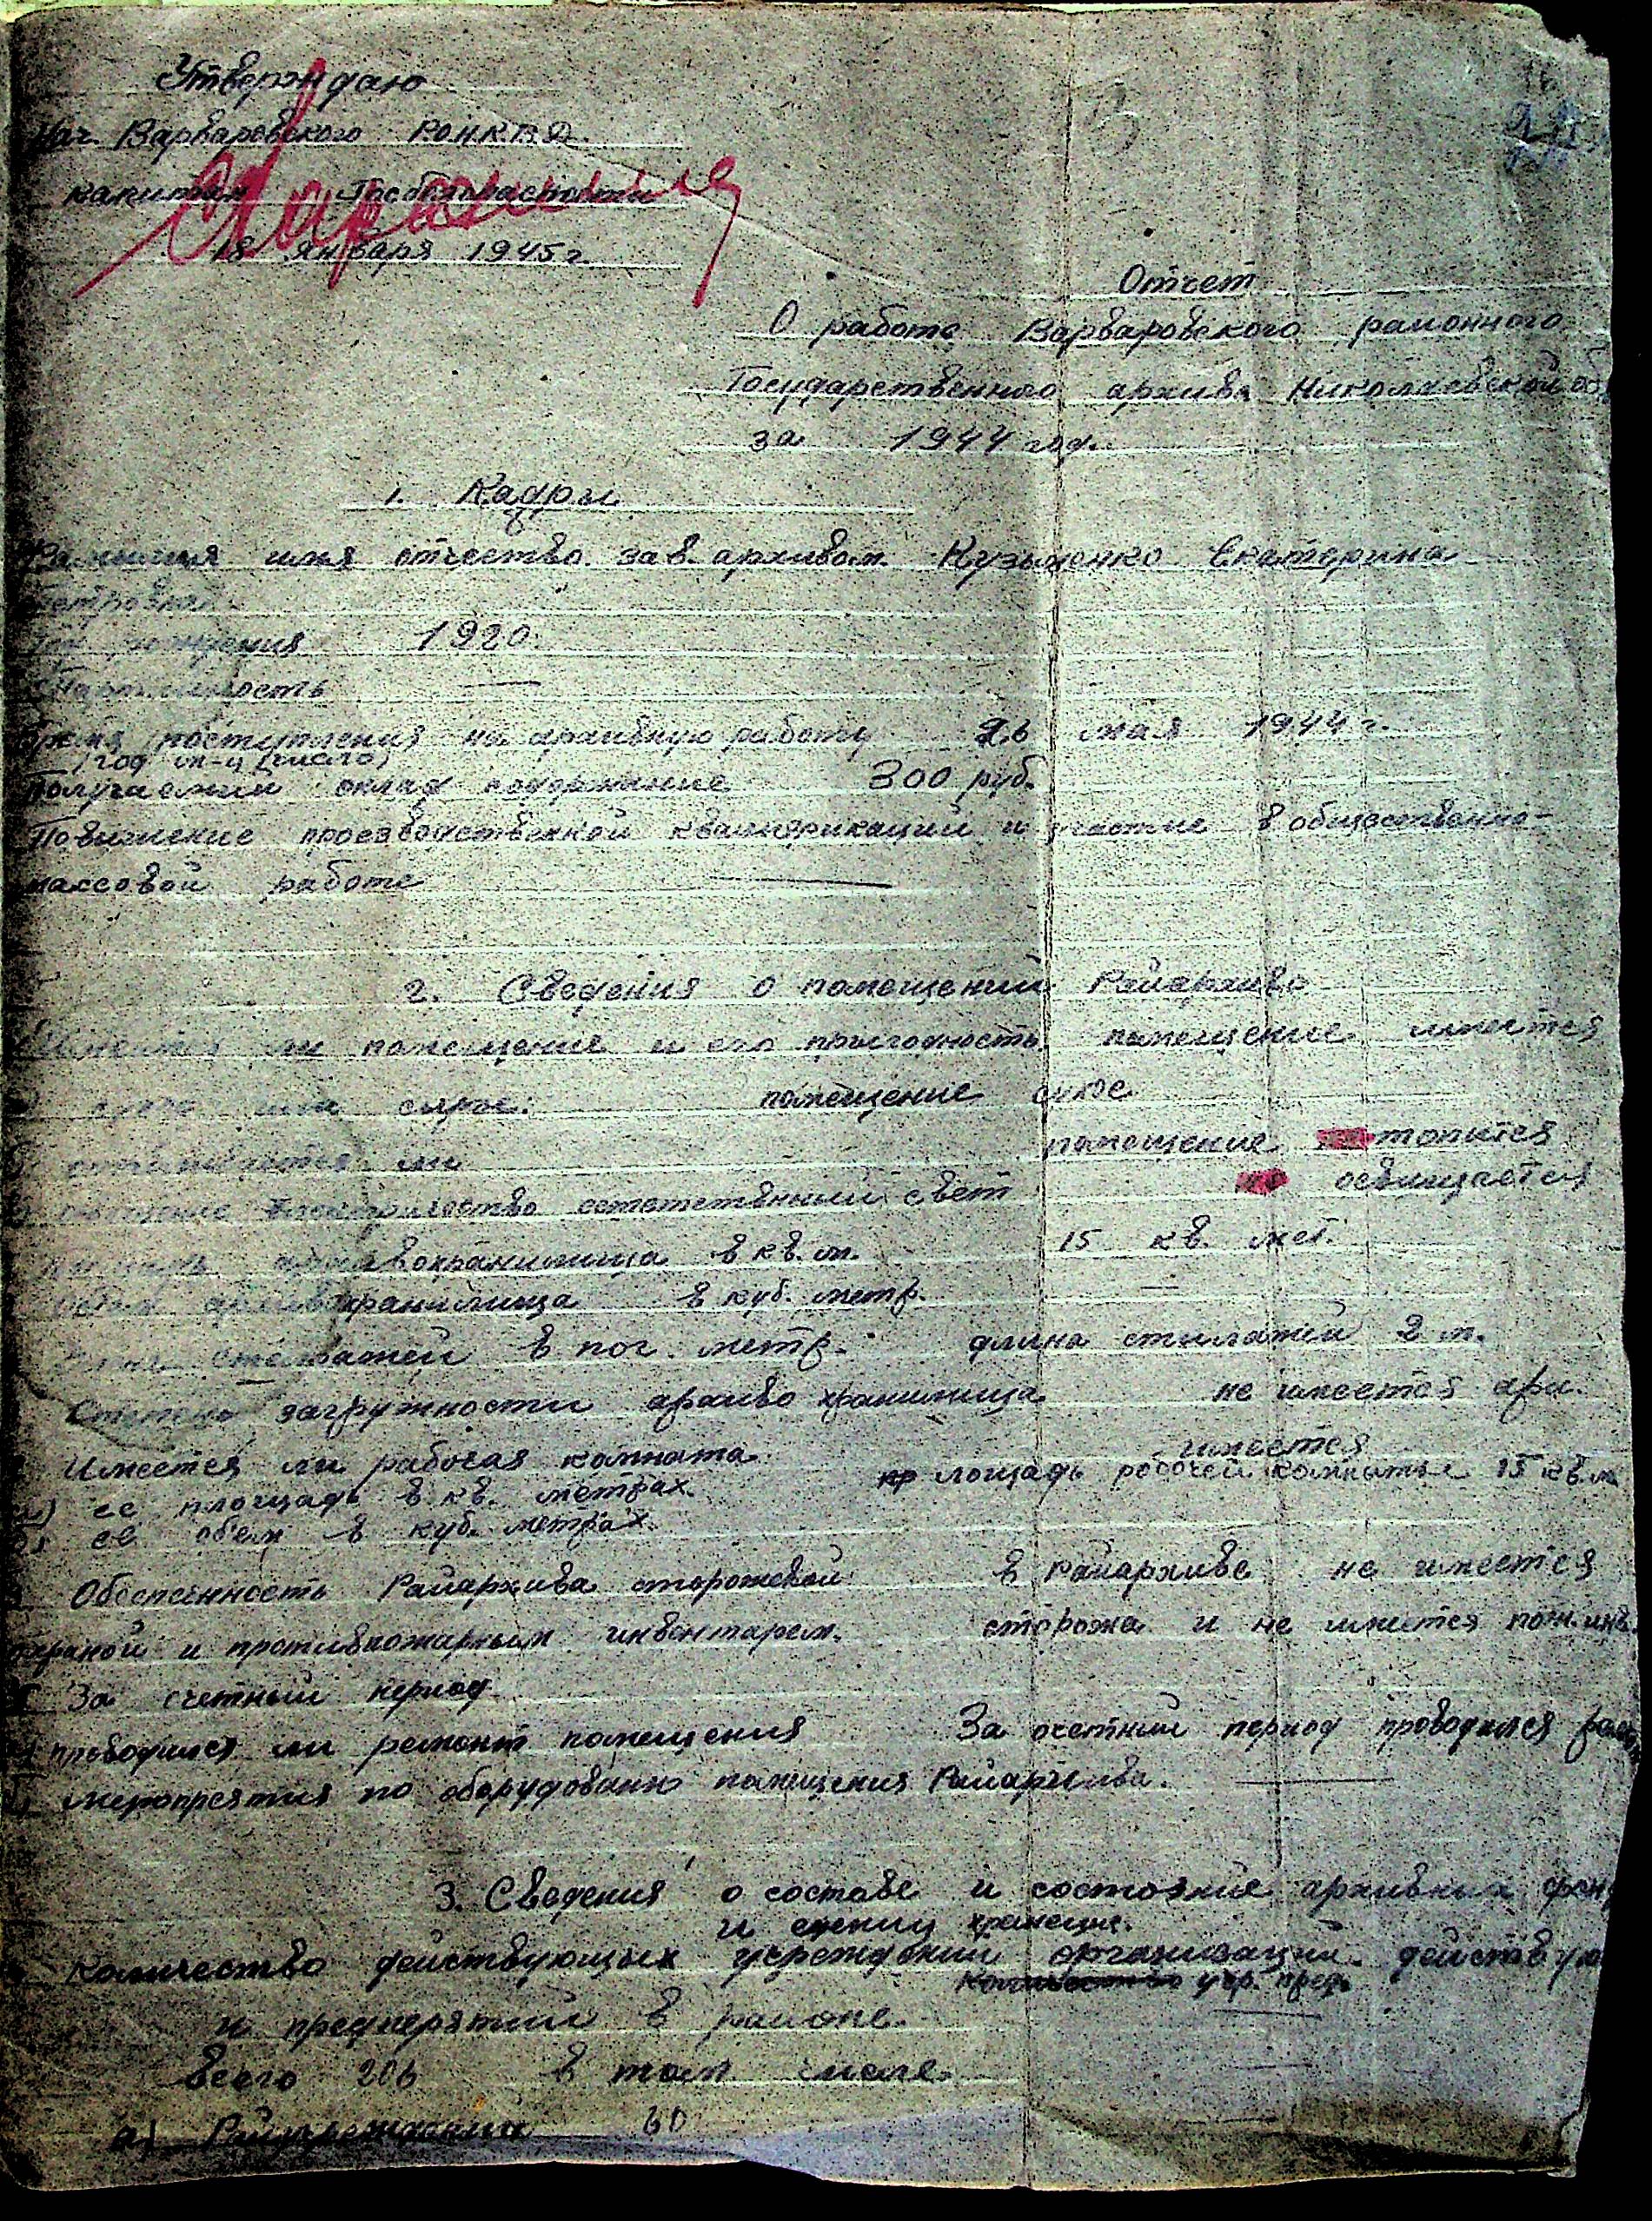 Утверждаю
Нач. Варваровского Р.О.Н.К.В.Д.
капитан Госбезопасности
18 января 1945 г
Отчет
О работе Варваровского районного
Государственного архива Николаевской об
за 1944 год.
1. Кадры
Фамилия имя отчество зав. архивом. Кузьменко Екатерина
Петровна
рождения 1920.
Партийность —
Время поступления на архивную работу 26 мая 1944 г.
/год м-ц (число)
Получаемый оклад содержание 300 руб.
Повышение производственной квалификаций и участие в общественно-
массовой работе —
2. Сведения о помещений Райархива
Имеется ли помещение и его пригодность помещение имеется
сухое или сырое. помещение сухое
отапливается ли помещение топится
электричество естественный свет освещается
архивохранилища в кв. м. 15 кв. мет.
архивохранилища в куб. метр. —
стеллажей в пог. метр. длина стилажей 2 м.
Степень загружности архиво хранилища не имеется арх.
Имеется ли рабочая комната имеется
а) ее площадь в кв. метрах. площадь рабочей комнаты 15 кв. м
б) ее об'ем в куб. метрах.
Обеспеченность Райархива сторожевой в Райархиве не имеется
охраной и противпожарным инвентарем. сторожа и не имеется пож. инв.
За счетный период
проводился ли ремонт помещения За очетный период проводился рем
мероприятия по оборудованю помещения Райархива. —
3. Сведения о составе и состояние архивных фон
и единиц хранения.
Количество действующих учреждений организаций. действую
Количество учр. пред.
и предприятий в районе. —
Всего 206 в том числе. —
а) Райучреждений 60